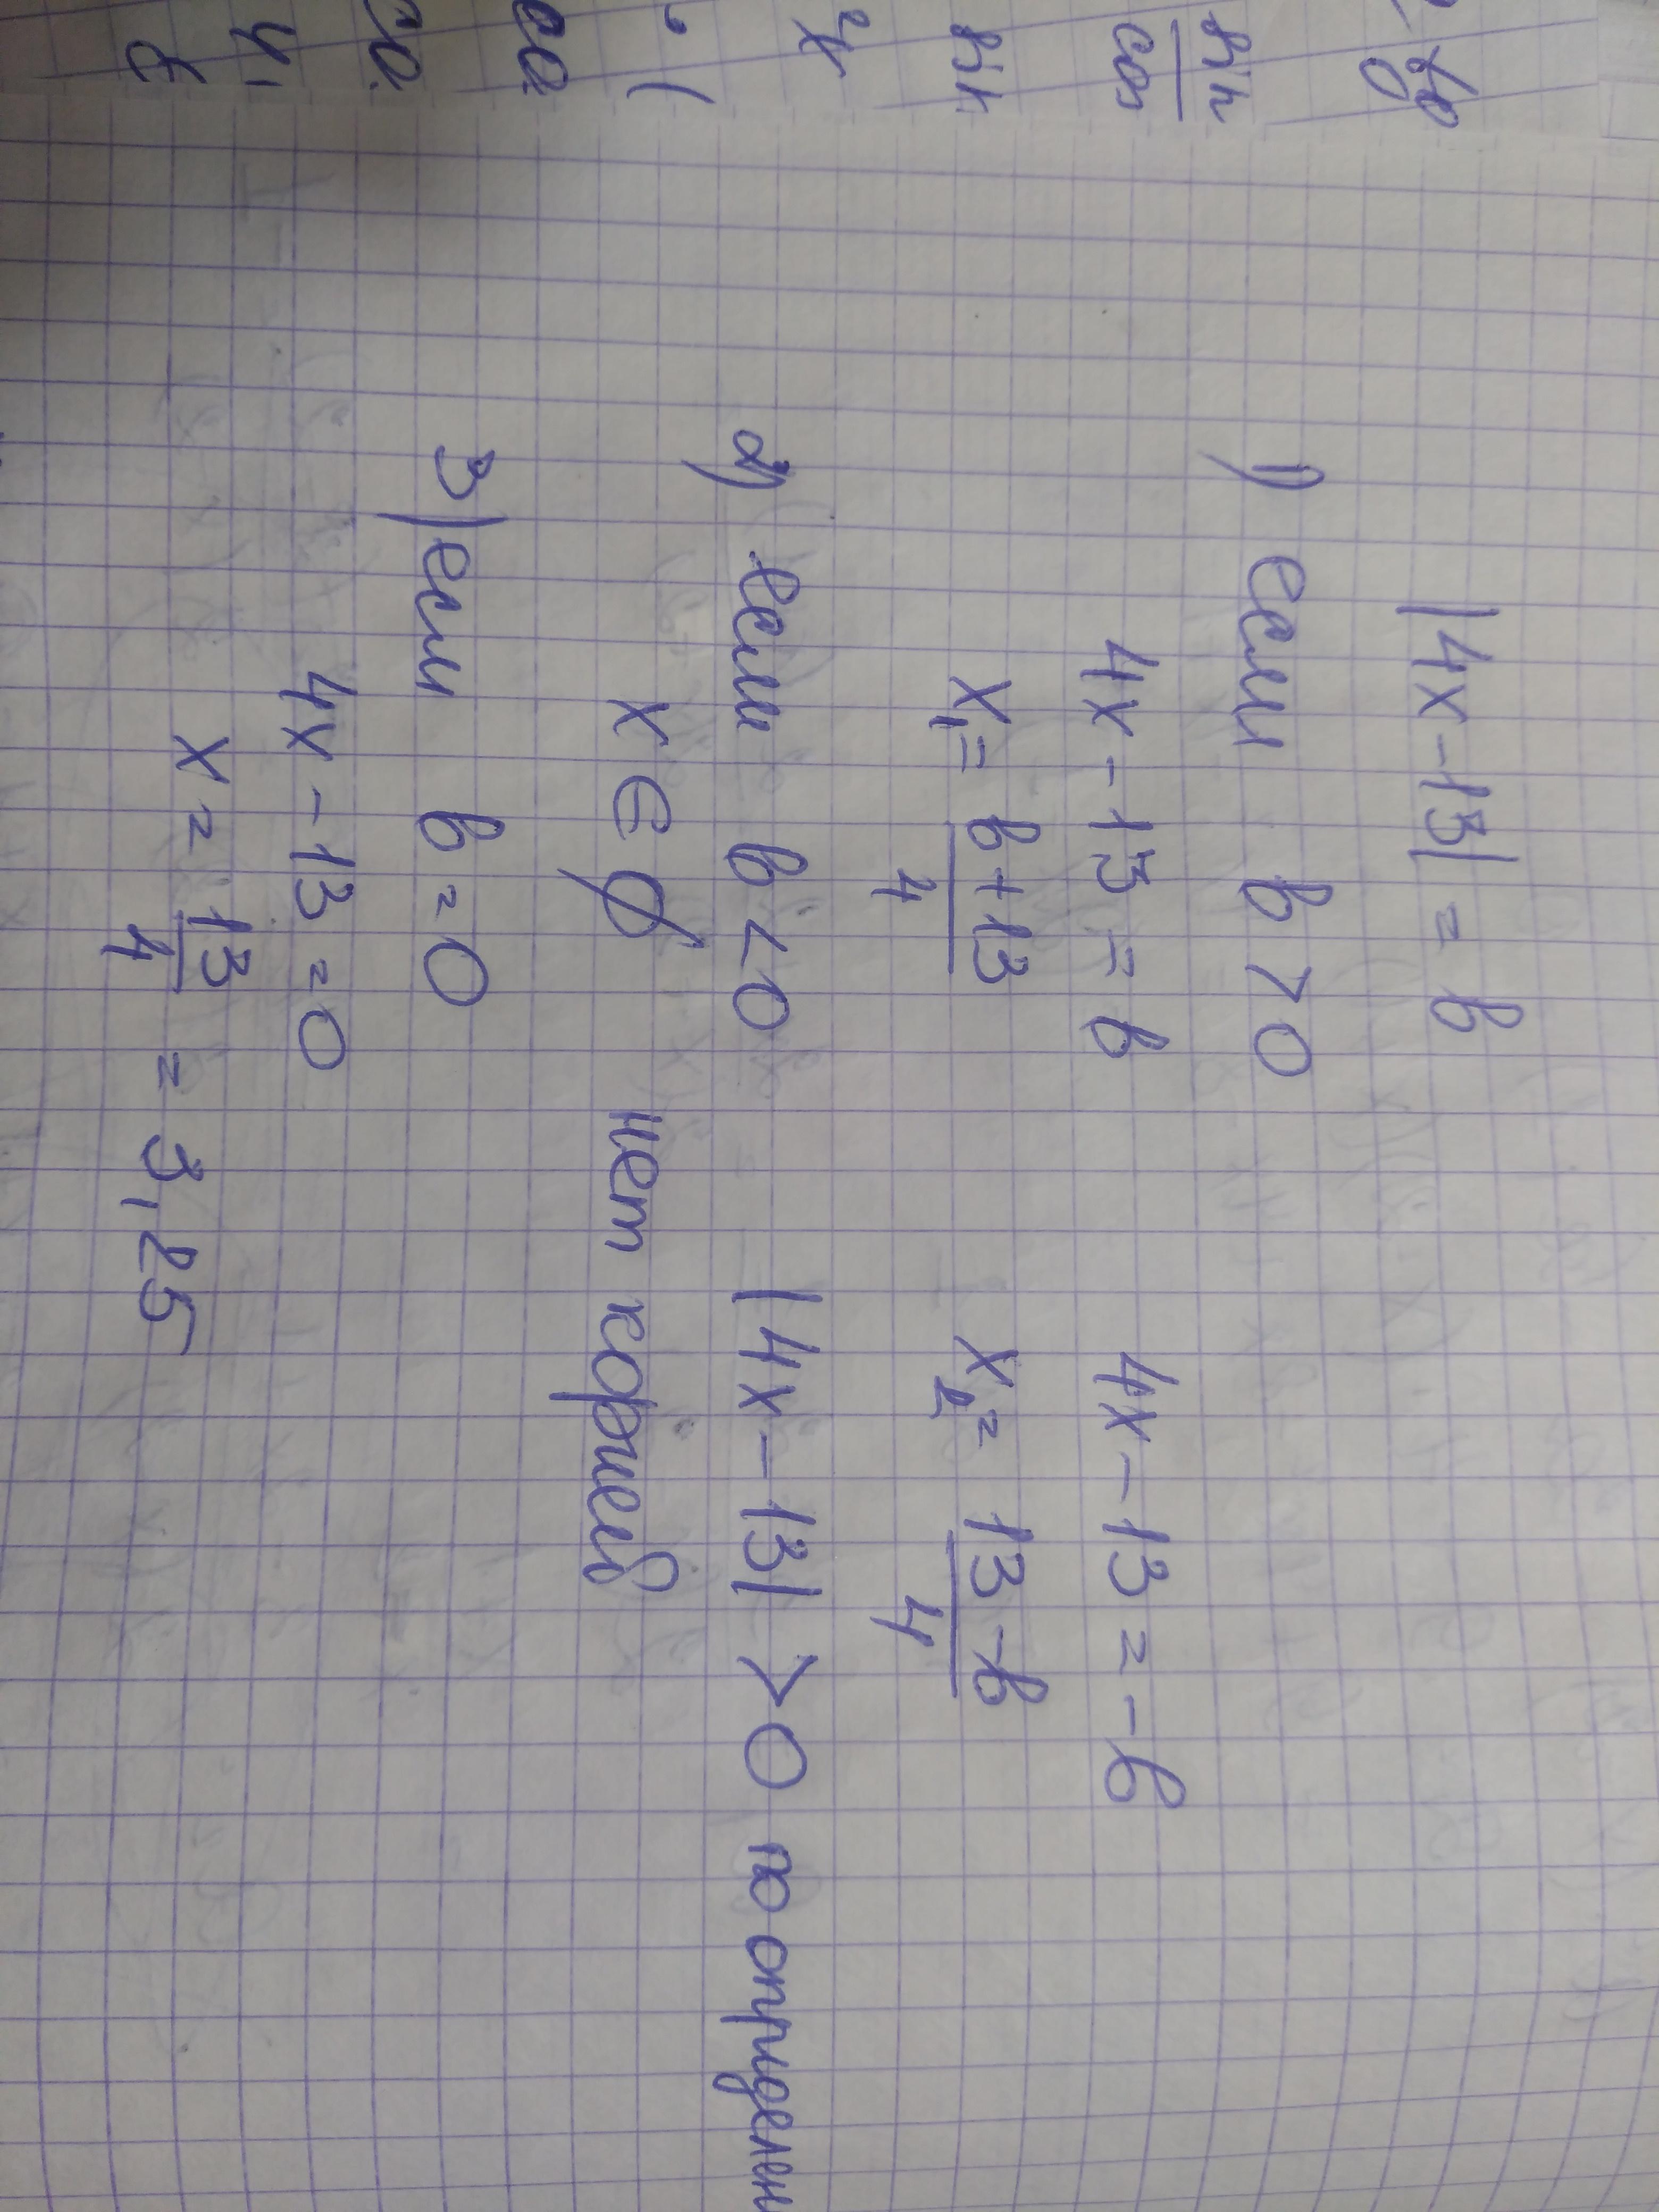 |4x-13| = b
1) если b > 0
4x-13 = b 4x-13 = -b
x₁ = (b+13)/4 x₂ = (13-b)/4
2) если b < 0 |4x-13| > 0 по определен
x ∈ ∅ нет корней
3) если b = 0
4x-13 = 0
x = 13/4 = 3,25
sin
cos
sin